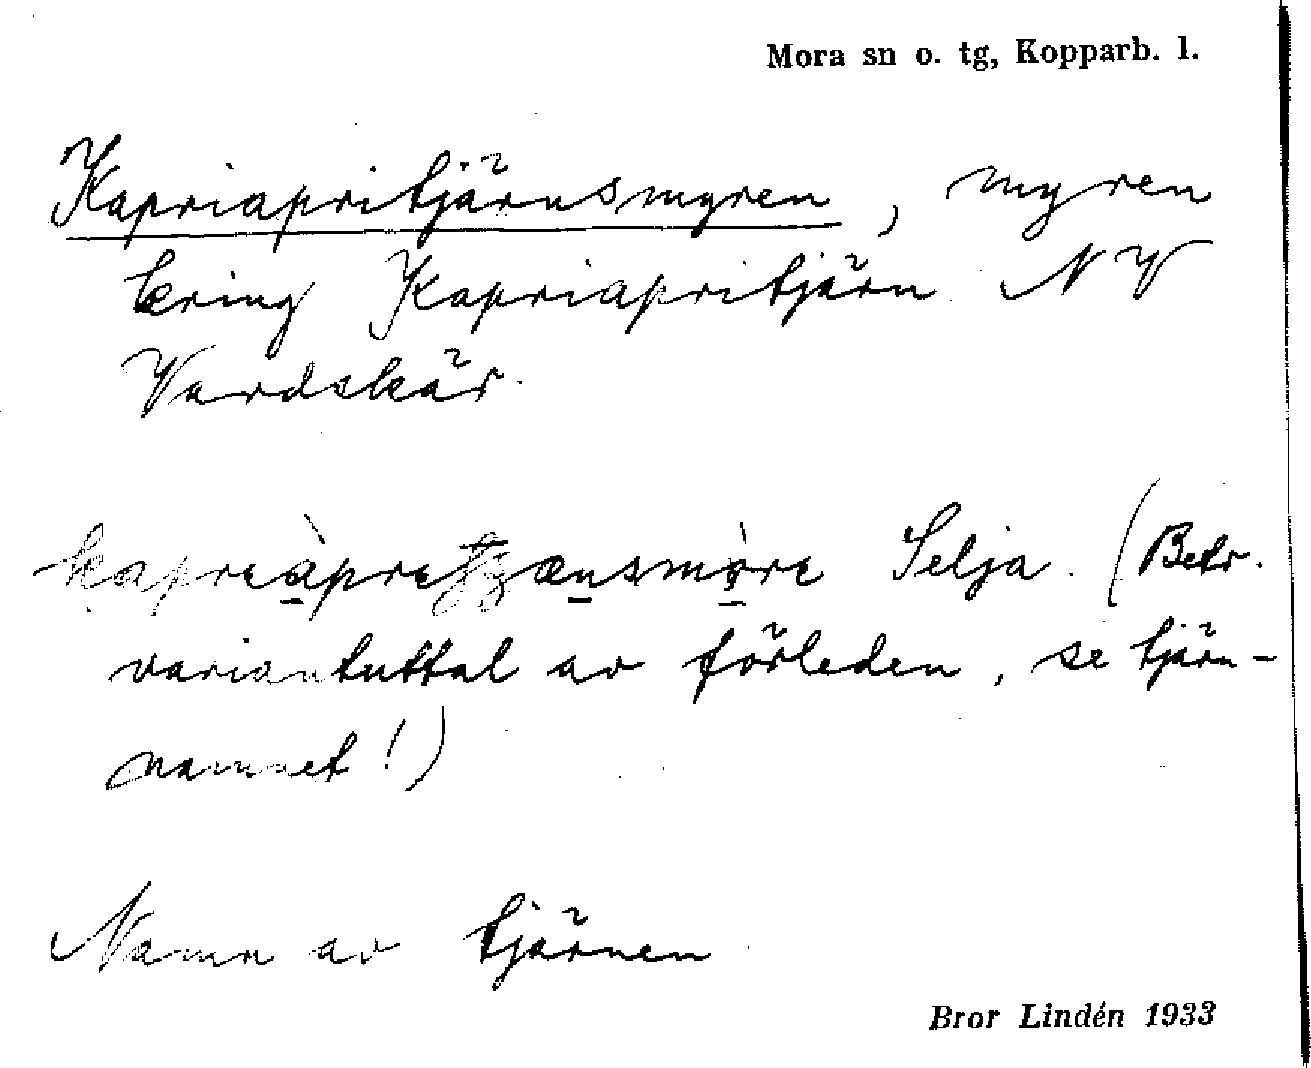 Mora sn o. tg, Kopparb. l.
Kapriapritjärnsmyren, myren
kring Kapriapritjärn NV
Vardskär.
Selja. (Betr.
variantuttal av förleden, se tjärn-
namnet!)
Namn av tjärnen
Bror Lindén 1933